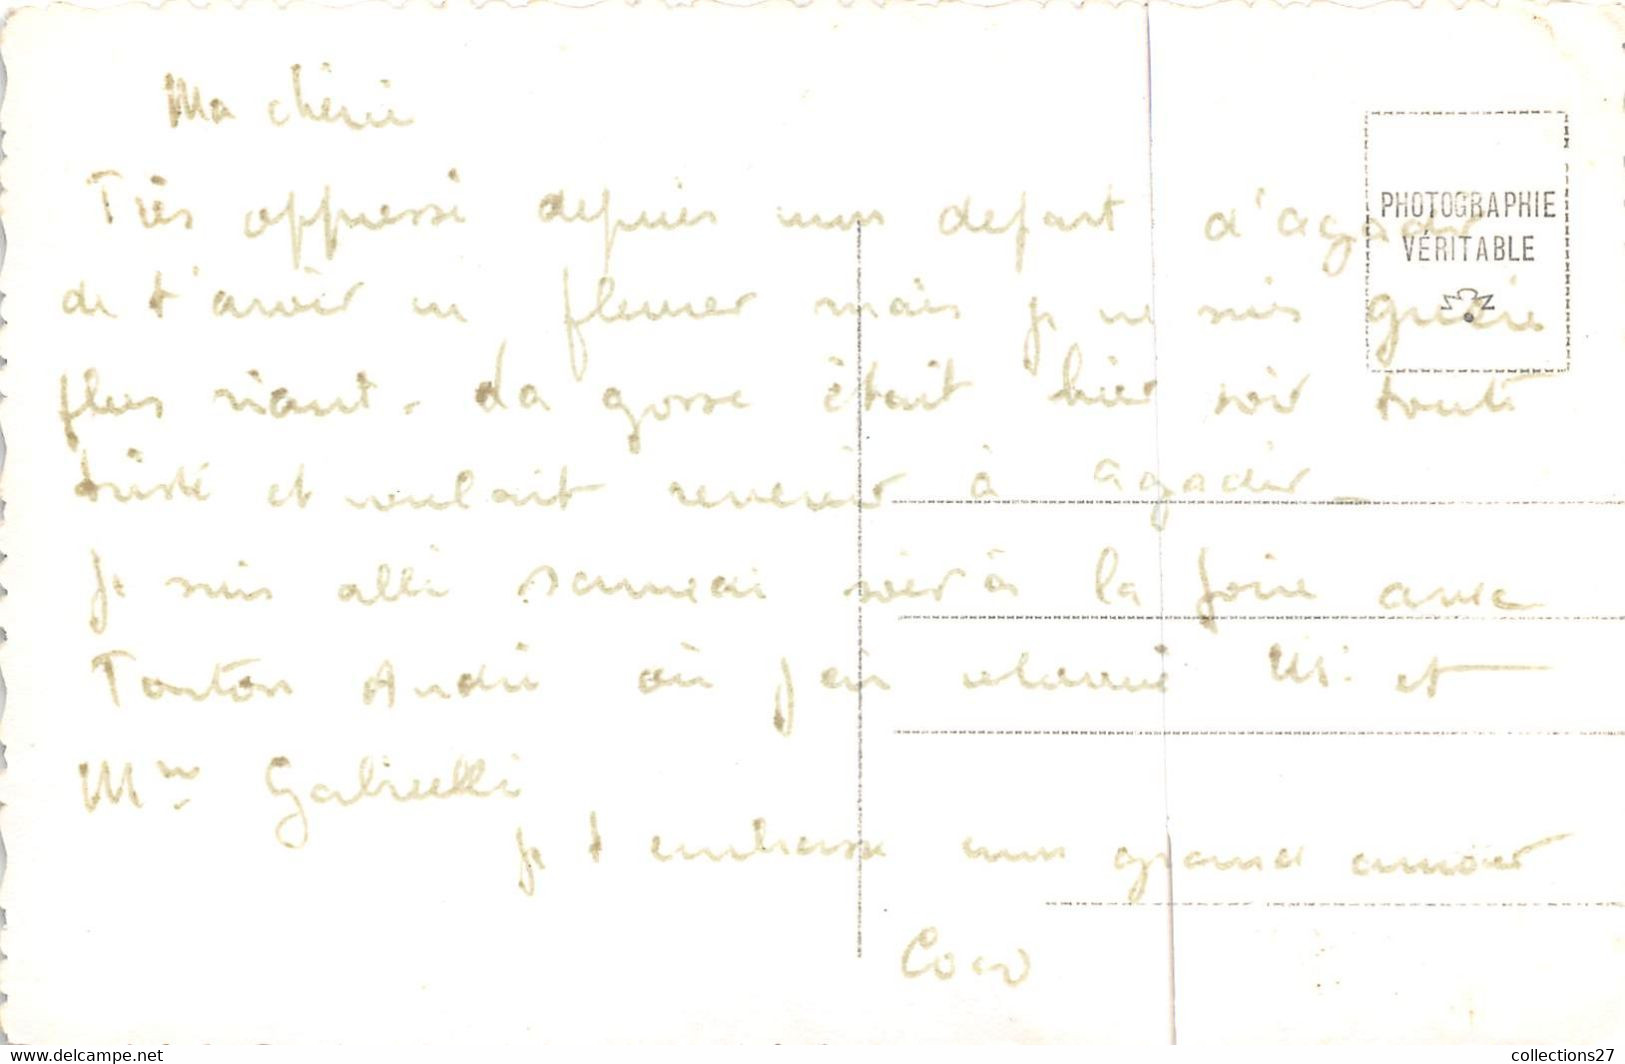 Ma chérie
Très oppressé depuis mon départ d'agadir
PHOTOGRAPHIE
VÉRITABLE
de t'avoir vu pleurer mais je ne suis guère
plus riant - La gosse était hier soir toute
triste et voulait revenir à agadir -
Je suis allé samedi soir à la foire avec
Tonton André où j'ai Mr et
Mme Gabrielli
Je t embrasse mon grand amour
Coco
www.delcampe.net
collections27